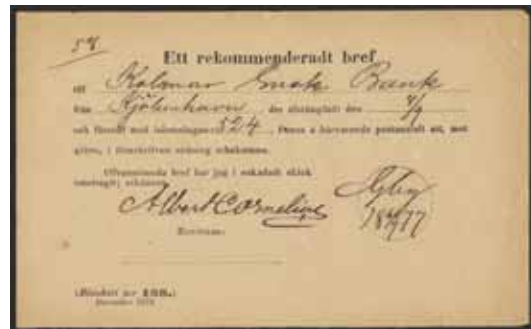 58
Ett rekommenderadt bref
till Kalmar Ensk. Bank
från Kjöbenhavn, der afstämpladt den 4/9
och försedt med inlemningsnr 524. Finnes å härvarande postanstalt att, mot
qvitto, i föreskrifven ordning utbekomma.
Ofvannämnda bref har jag i oskadadt skick
emottagit; erkännes.
Albert Cornelius
(Blankett nr 158.)
December 1875